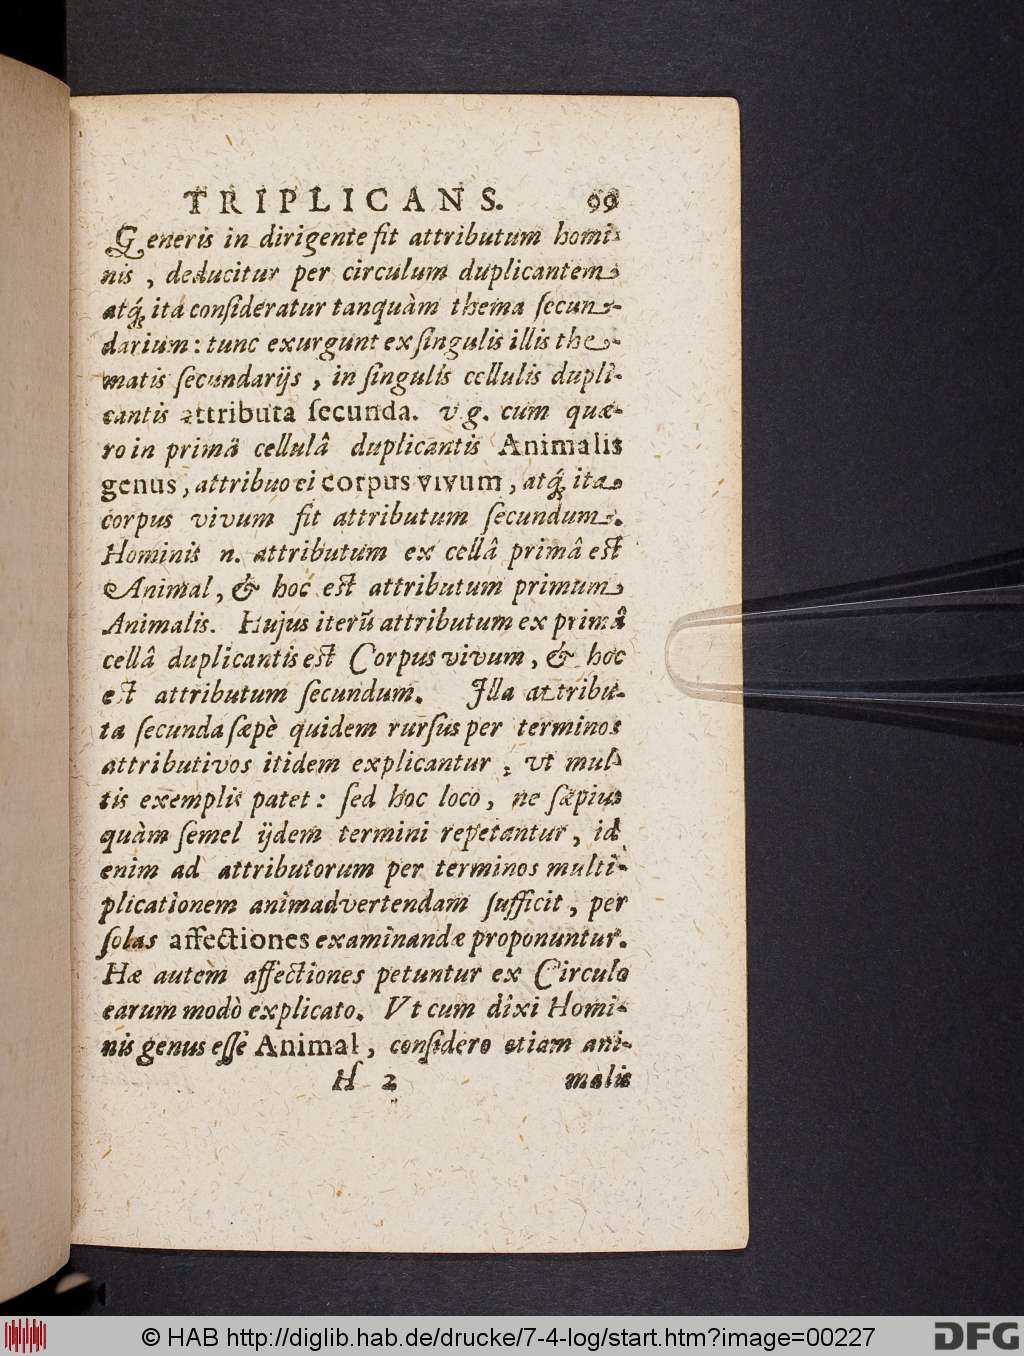 TRIPLICANS. 99
Generis in dirigente fit attributum homi-
nis, deducitur per circulum duplicantem
atq́; ita consideratur tanquàm thema secun-
darium: tunc exurgunt ex singulis illis the-
matis secundarijs, in singulis cellulis dupli-
cantis attributa secunda. v g. cum quæ-
ro in primâ cellulâ duplicantis Animalis
genus, attribuo ei corpus vivum, atq́; ita
corpus vivum fit attributum secundum.
Hominis n. attributum ex cellâ primâ est
Animal, & hoc est attributum primum
Animalis. Hujus iterũ attributum ex primâ
cellâ duplicantis est Corpus vivum, & hoc
est attributum secundum. Illa attribu-
ta secunda sæpè quidem rursus per terminos
attributivos itidem explicantur, ut mul-
tis exemplis patet: sed hoc loco, ne sæpius
quàm semel ijdem termini repetantur, id
enim ad attributorum per terminos multi-
plicationem animadvertendam sufficit, per
solas affectiones examinandæ proponuntur.
Hæ autem affectiones petuntur ex Circulo
earum modò explicato. Vt cum dixi Homi-
nis genus esse Animal, considero etiam ani-
H 2 malis
© HAB http://diglib.hab.de/drucke/7-4-log/start.htm?image=00227 DFG